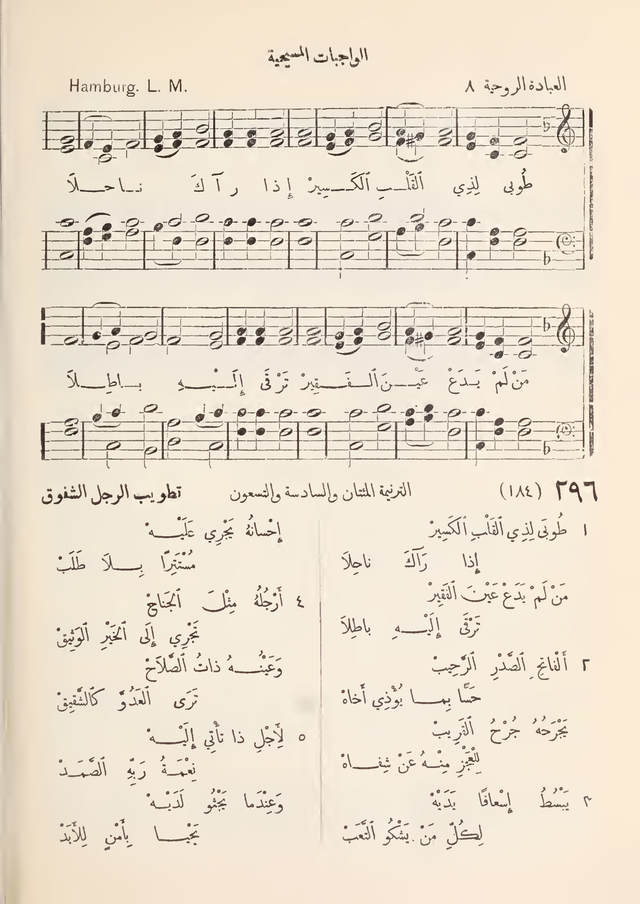 الواجبات المسيحية
العبادة الروحية ٨
Hamburg. L. M.
طُوبى لِذِي القَلْبِ الكَسِيرْ إِذا رآكَ ناحِلاَ
مَنْ لَمْ يَدَعْ عَيْنَ الفَقِيرْ تَرْقَى إِلَيْهِ باطِلاَ
٢٩٦ (١٨٤) الترنيمة المئتان والسادسة والتسعون تطويب الرجل الشفوق
١ طُوبَى لِذِي القَلْبِ الكَسِيرْ
إِذا رَآكَ ناحِلاَ
مَنْ لَمْ يَدَعْ عَيْنَ الفَقِيرْ
تَرْقَى إِلَيْهِ باطِلاَ
٢ أَلْفاتِحِ الصَّدْرِ الرَّحِيبْ
حَسًّا بِما يُؤْذِي أَخاهْ
يَجْرَحُهُ جُرْحُ القَرِيبْ
لِلْعَجْزِ مِنْهُ عَنْ شِفاهْ
٣ يَبْسُطُ إِسْعافًا يَدَيْهْ
لِكُلِّ مَنْ يَشْكُو التَّعَبْ
إِحْسانُهُ يَجْرِي عَلَيْهْ
مُسْتَتِرًا بِلاَ طَلَبْ
٤ أَرْجُلُهُ مِثْلَ الجَناحْ
تَجْرِي إِلَى الخَيْرِ الوَثِيقْ
وَعَيْنُهُ ذاتُ الصَّلاَحْ
تَرَى العَدُوَّ كَالشَّفِيقْ
٥ لأَجْلِ ذا تَأْتِي إِلَيْهْ
نِعْمَةُ رَبِّهِ الصَّمَدْ
وَعِنْدَما يَجْثُو لَدَيْهْ
يَحْيا بِأَمْنٍ لِلأَبَدْ